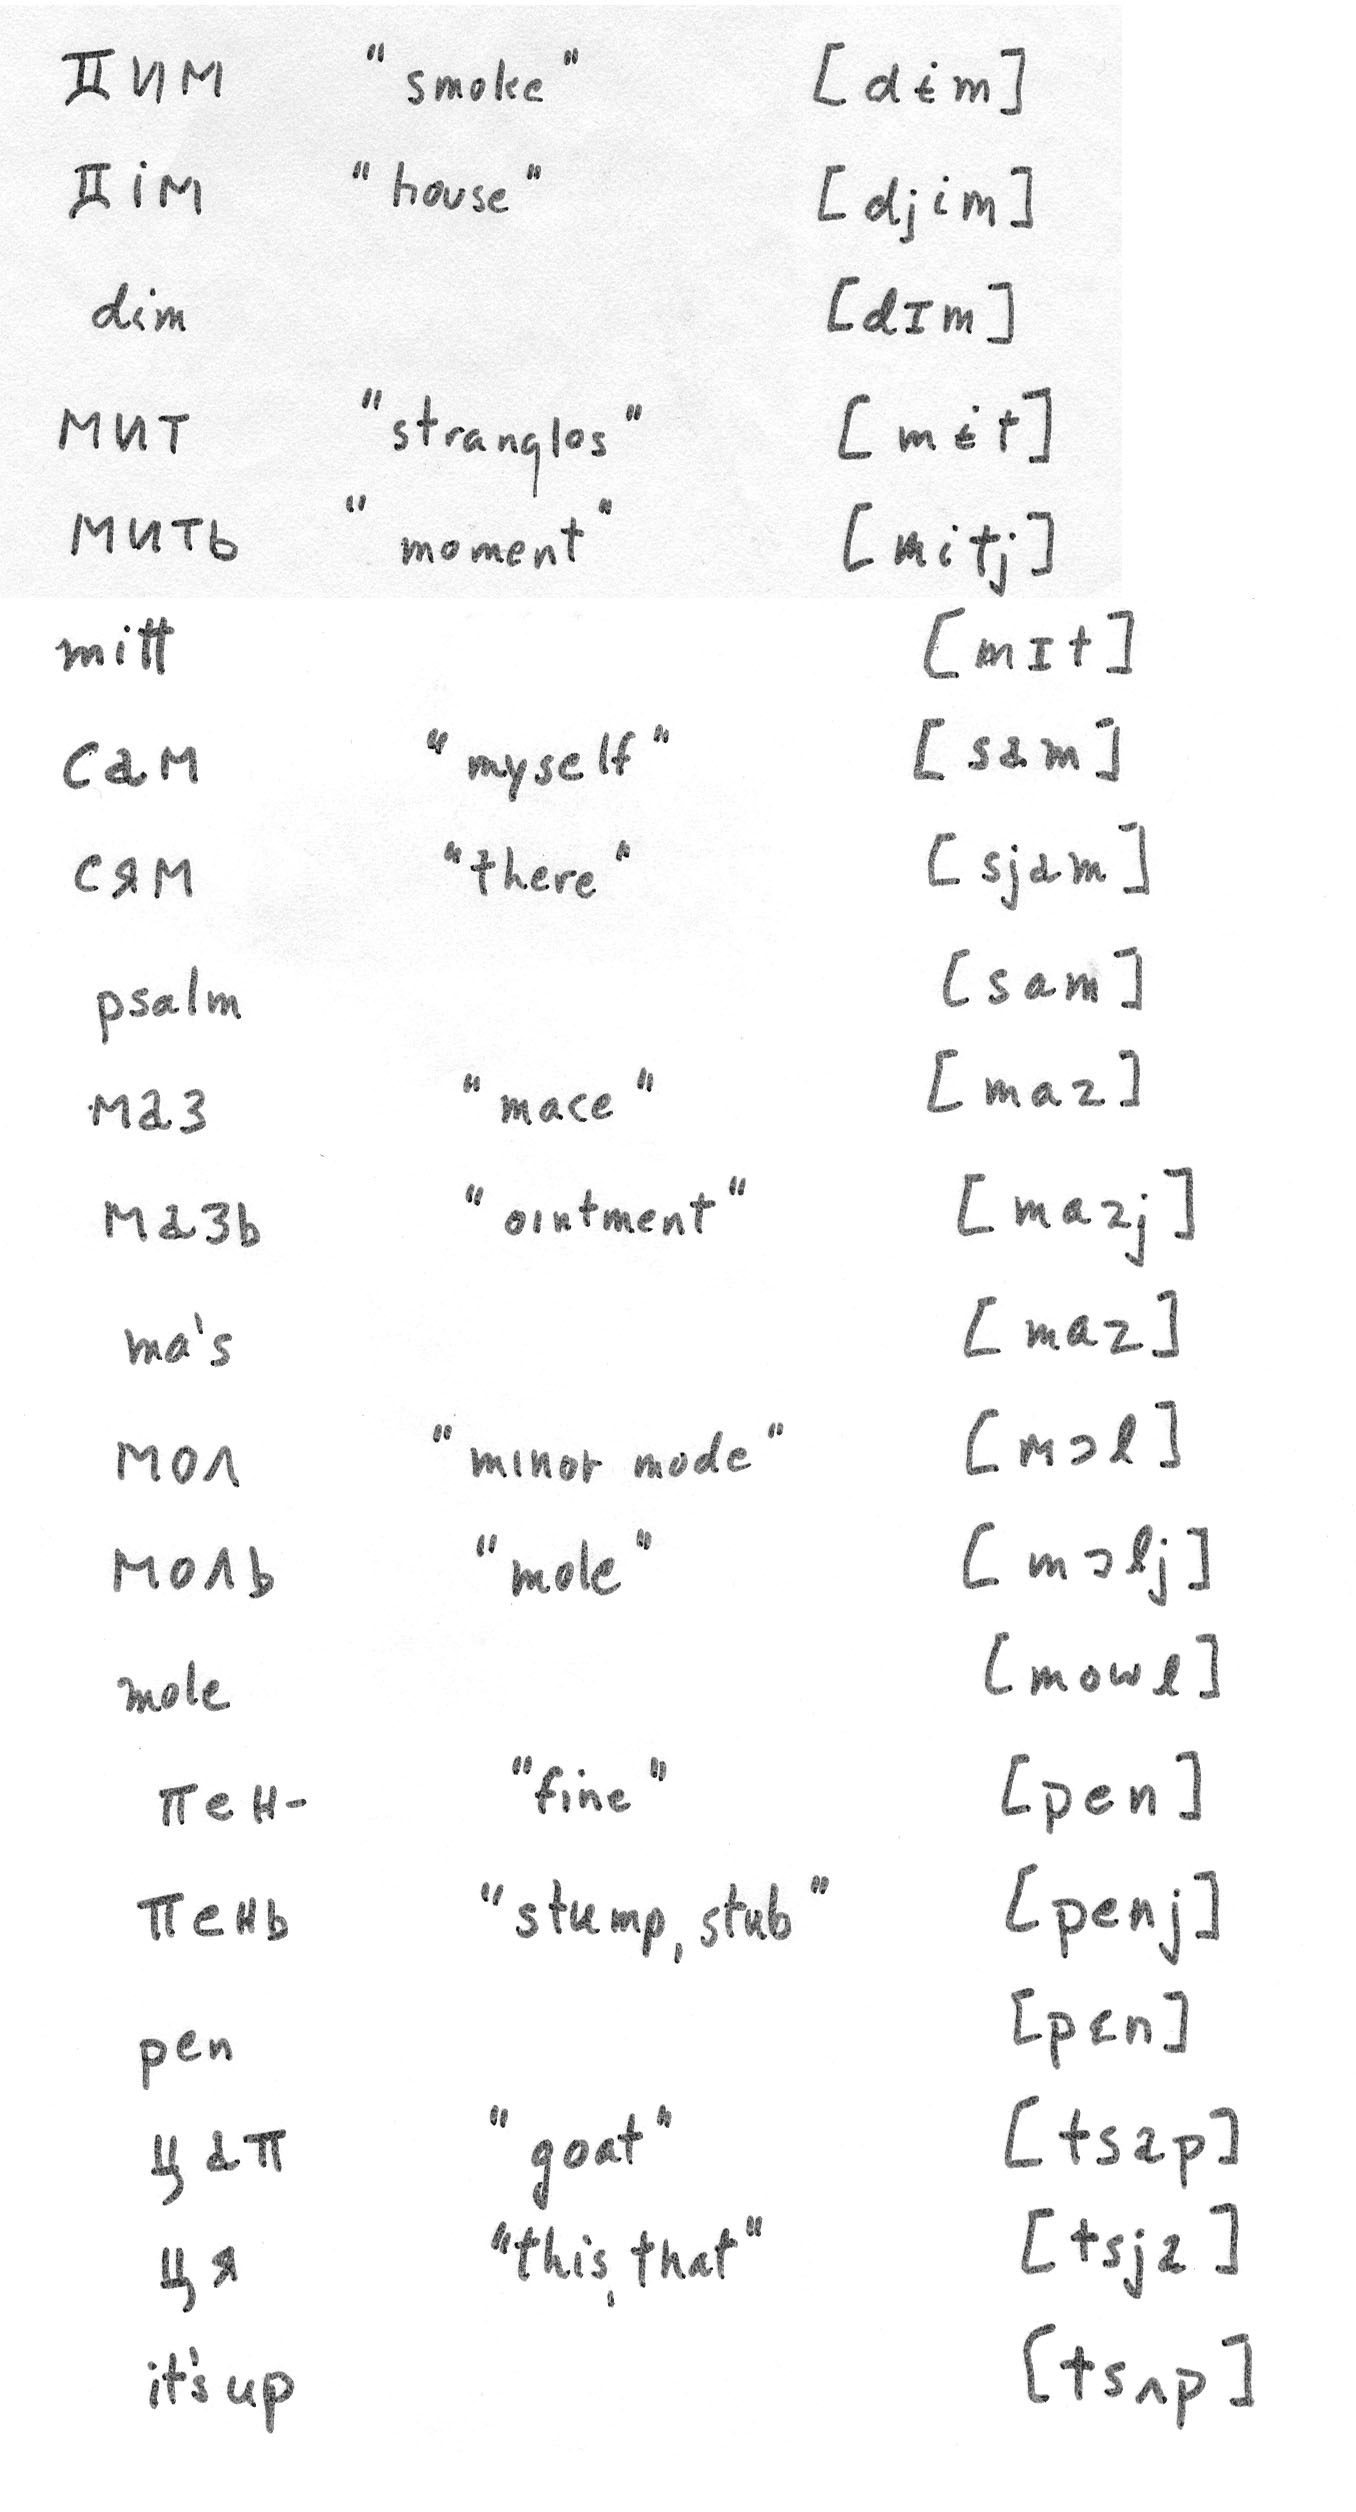 дим "smoke" [dɨm]
дім "house" [djim]
dim [dIm]
мит "strangles" [mɨt]
мить "moment" [mitj]
mitt [mIt]
сам "myself" [sam]
сям "there" [sjam]
psalm [sam]
маз "mace" [maz]
мазь "ointment" [mazj]
ma's [maz]
мол "minor mode" [mɔl]
моль "mole" [mɔlj]
mole [mowl]
пен- "fine" [pen]
пень "stump, stub" [penj]
pen [pɛn]
цап "goat" [tsap]
ця "this, that" [tsja]
it's up [tsʌp]